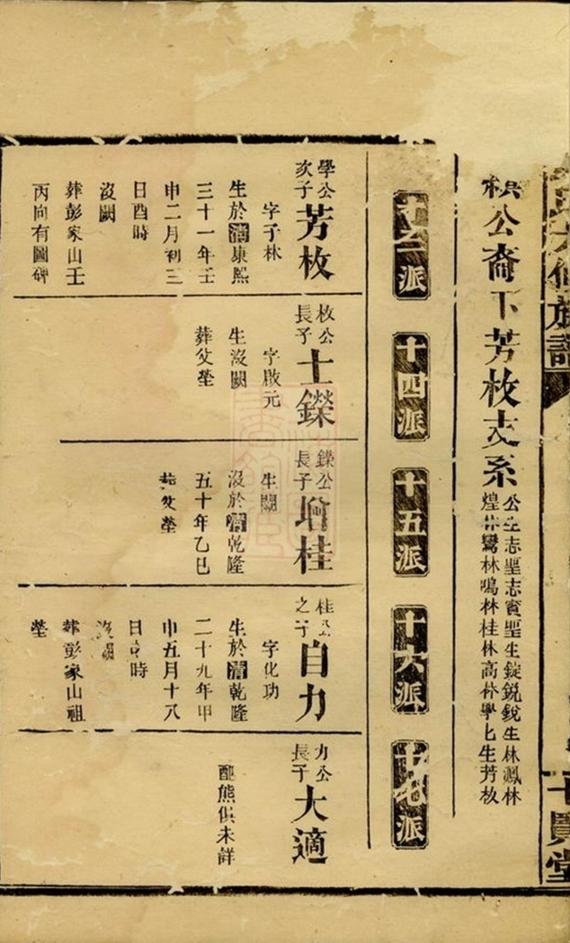 公裔下芳枚支系
公生志聖志賓聖生錠銳銳生林鳳林
煌林鸞林鳴林桂林高林學七生芳枚
十四派
十五派
十六派
派
學公
次子
芳枚
字子林
生於清康熙
三十一年壬
申二月初三
日酉時
沒闕
葬彭家山壬
丙向有圖碑
枚公
長子
士鑅
字啟元
生沒闕
葬父塋
鑅公
長子
桂
生闕
沒於清乾隆
五十年乙巳
葬父塋
桂公
之子
自力
字化功
生於清乾隆
二十九年甲
申五月十八
日 時
沒闕
葬彭家山祖
塋
力公
長子
大適
配熊俱未詳
族譜
十賢堂